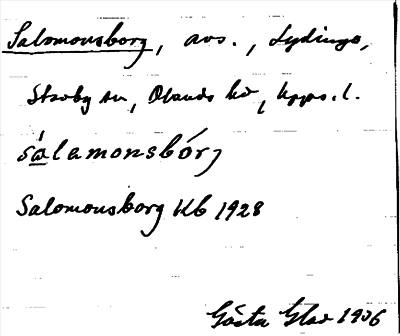 Salomonsborg, avs., Lydinge,
Stavby sn, Olands hd, Upps. l.
sálamonsbórj
Salomonsborg Kb 1928
Gösta 1906